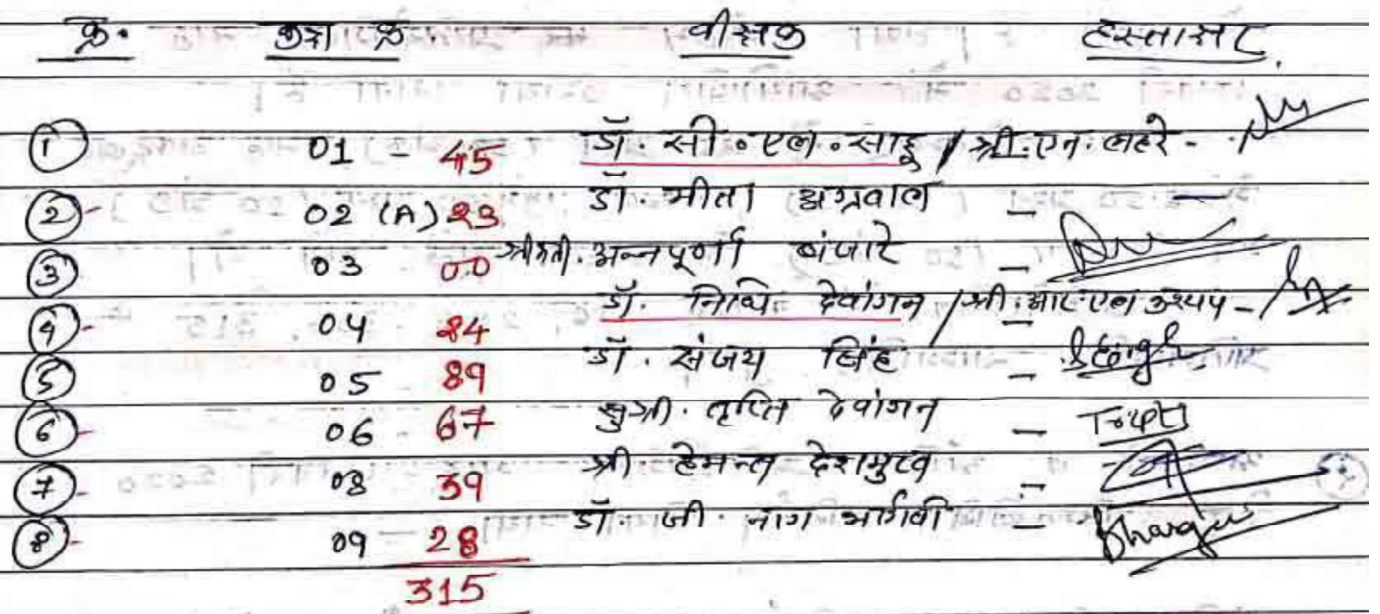 क्र. कक्ष क्र. वीक्षक हस्ताक्षर
① 01 - 45 डॉ. सी. एल. साहू / श्री. एन. लहरे -
② - 02 (A) 23 डॉ. मीता अग्रवाल -
③ 03 00 श्रीमती. अन्नपूर्णा बंजारे -
④ - 04 24 डॉ. निधि देवांगन / श्री. आर. एल कश्यप -
⑤ 05 89 डॉ. संजय सिंह -
⑥ - 06 - 67 सुश्री. तृप्ति देवांगन - Tripti
⑦ - 08 39 श्री हेमन्त देशमुख -
⑧ - 09 28 डॉ. जी. नाग भार्गवी - Bhargavi
315